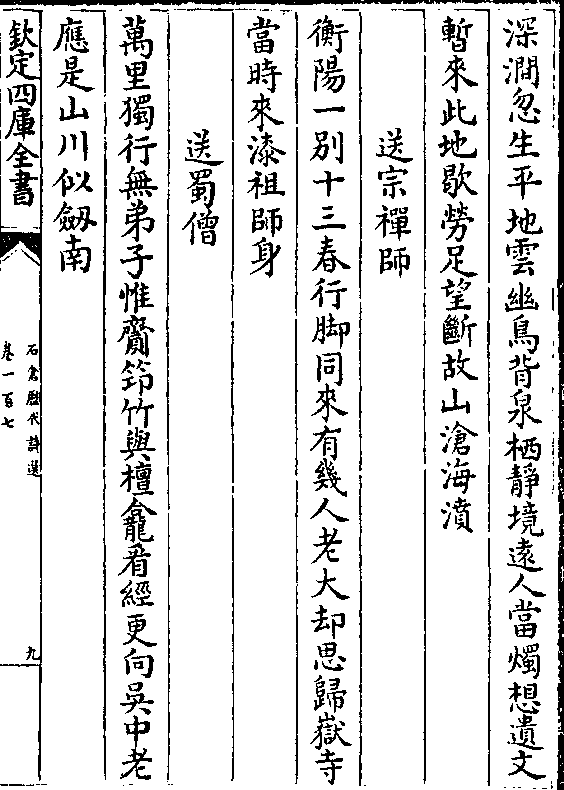 深澗忽生平地雲幽鳥背泉栖靜境遠人當燭想遺文
暫來此地歇勞足望斷故山滄海濆
送宗禪師
衡陽一別十三春行脚同來有幾人老大却思歸嶽寺
當時來漆祖師身
送蜀僧
萬里獨行無弟子惟齎筇竹與檀龕看經更向吳中老
應是山川似劔南
欽定四庫全書
石倉歷代詩選
卷一百七
九